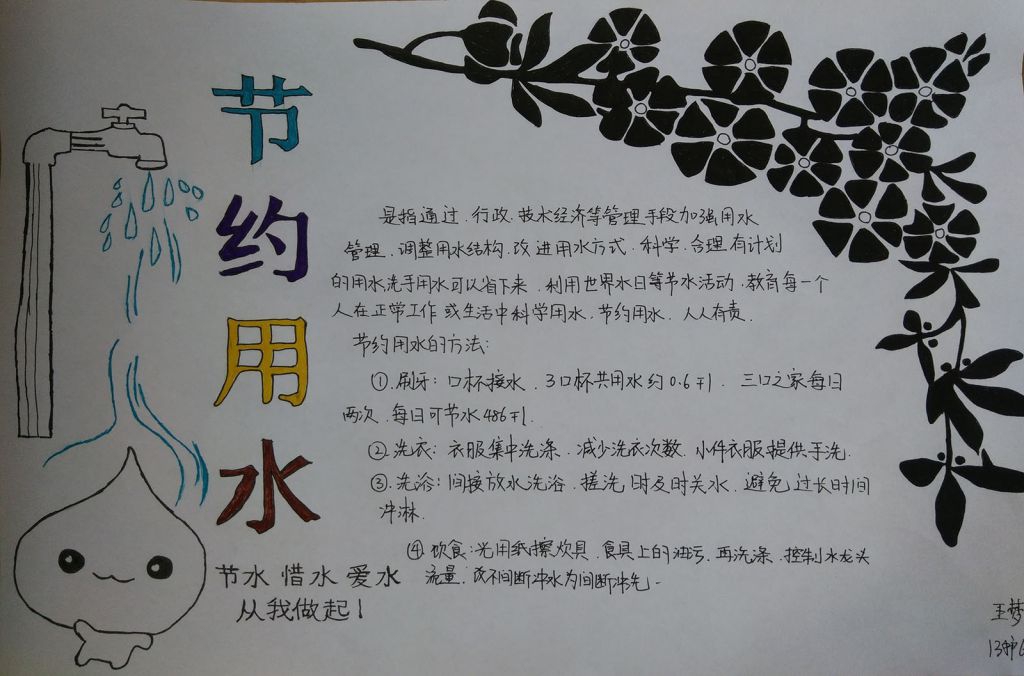 节约用水
是指通过.行政.技水经济等管理手段加强用水
管理.调整用水结构.改进用水方式.科学.合理.有计划
的用水洗手用水可以省下来.利用世界水日等节水活动.教育每一个
人在正常工作或生活中科学用水.节约用水.人人有责.
节约用水的方法:
①.刷牙:口杯接水.3口杯共用水约0.6升.三口之家每日
两次.每日可节水486升.
②洗衣:衣服集中洗涤.减少洗衣次数.小件衣服提供手洗.
③.洗浴:间接放水洗浴.搓洗时及时关水.避免过长时间
冲淋.
④饮食:先用纸擦炊具.食具上的油污.再洗涤.控制水龙头
流量.改不间断冲水为间断冲洗.
节水 惜水 爱水
从我做起!
王梦
13护